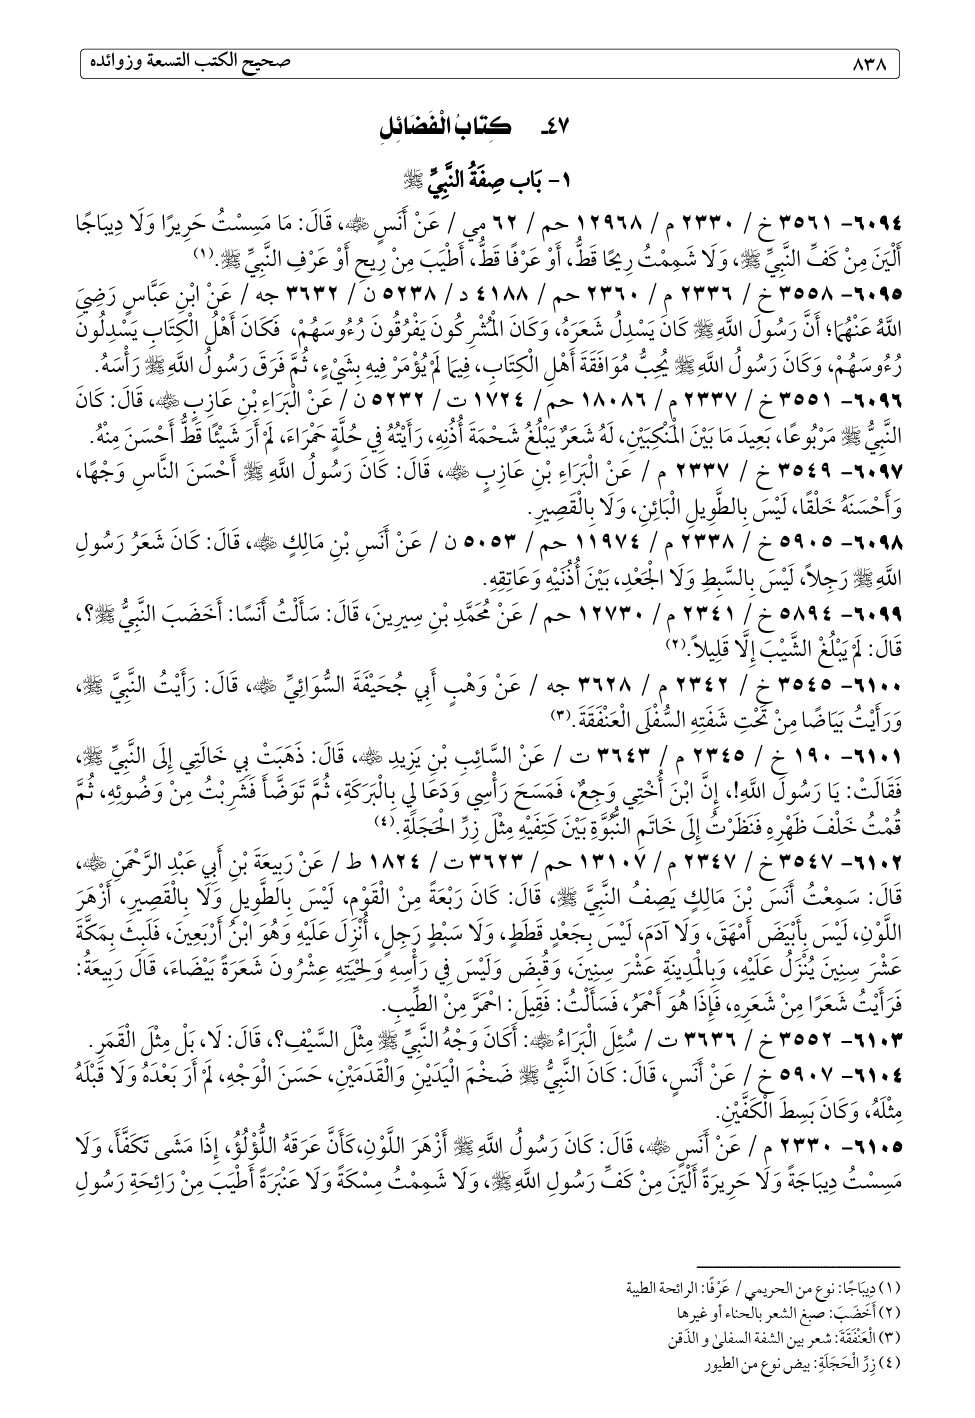 ٨٣٨ صحيح الكتب التسعة وزوائده
٤٧ـ كِتَابُ الْفَضَائِلِ
١- بَاب صِفَةُ النَّبِيِّ ﷺ
٦٠٩٤- ٣٥٦١ خ / ٢٣٣٠ م / ١٢٩٦٨ حم / ٦٢ مي / عَنْ أَنَسٍ ﵁، قَالَ: مَا مَسِسْتُ حَرِيرًا وَلَا دِيبَاجًا
أَلْيَنَ مِنْ كَفِّ النَّبِيِّ ﷺ، وَلَا شَمِمْتُ رِيحًا قَطُّ، أَوْ عَرْفًا قَطُّ، أَطْيَبَ مِنْ رِيحِ أَوْ عَرْفِ النَّبِيِّ ﷺ.(١)
٦٠٩٥- ٣٥٥٨ خ / ٢٣٣٦ م / ٢٣٦٠ حم / ٤١٨٨ د / ٥٢٣٨ ن / ٣٦٣٢ جه / عَنْ ابْنِ عَبَّاسٍ رَضِيَ
اللَّهُ عَنْهُمَا؛ أَنَّ رَسُولَ اللَّهِ ﷺ كَانَ يَسْدِلُ شَعَرَهُ، وَكَانَ الْمُشْرِكُونَ يَفْرُقُونَ رُءُوسَهُمْ، فَكَانَ أَهْلُ الْكِتَابِ يَسْدِلُونَ
رُءُوسَهُمْ، وَكَانَ رَسُولُ اللَّهِ ﷺ يُحِبُّ مُوَافَقَةَ أَهْلِ الْكِتَابِ، فِيمَا لَمْ يُؤْمَرْ فِيهِ بِشَيْءٍ، ثُمَّ فَرَقَ رَسُولُ اللَّهِ ﷺ رَأْسَهُ.
٦٠٩٦- ٣٥٥١ خ / ٢٣٣٧ م / ١٨٠٨٦ حم / ١٧٢٤ ت / ٥٢٣٢ ن / عَنْ الْبَرَاءِ بْنِ عَازِبٍ ﵁، قَالَ: كَانَ
النَّبِيُّ ﷺ مَرْبُوعًا، بَعِيدَ مَا بَيْنَ الْمَنْكِبَيْنِ، لَهُ شَعَرٌ يَبْلُغُ شَحْمَةَ أُذُنِهِ، رَأَيْتُهُ فِي حُلَّةٍ حَمْرَاءَ، لَمْ أَرَ شَيْئًا قَطُّ أَحْسَنَ مِنْهُ.
٦٠٩٧- ٣٥٤٩ خ / ٢٣٣٧ م / عَنْ الْبَرَاءِ بْنِ عَازِبٍ ﵁، قَالَ: كَانَ رَسُولُ اللَّهِ ﷺ أَحْسَنَ النَّاسِ وَجْهًا،
وَأَحْسَنَهُ خَلْقًا، لَيْسَ بِالطَّوِيلِ الْبَائِنِ، وَلَا بِالْقَصِيرِ.
٦٠٩٨- ٥٩٠٥ خ / ٢٣٣٨ م / ١١٩٧٤ حم / ٥٠٥٣ ن / عَنْ أَنَسِ بْنِ مَالِكٍ ﵁، قَالَ: كَانَ شَعَرُ رَسُولِ
اللَّهِ ﷺ رَجِلاً، لَيْسَ بِالسَّبِطِ وَلَا الْجَعْدِ، بَيْنَ أُذُنَيْهِ وَعَاتِقِهِ.
٦٠٩٩- ٥٨٩٤ خ / ٢٣٤١ م / ١٢٧٣٠ حم / عَنْ مُحَمَّدِ بْنِ سِيرِينَ، قَالَ: سَأَلْتُ أَنَسًا: أَخَضَبَ النَّبِيُّ ﷺ؟،
قَالَ: لَمْ يَبْلُغْ الشَّيْبَ إِلَّا قَلِيلاً.(٢)
٦١٠٠- ٣٥٤٥ خ / ٢٣٤٢ م / ٣٦٢٨ جه / عَنْ وَهْبٍ أَبِي جُحَيْفَةَ السُّوَائِيِّ ﵁، قَالَ: رَأَيْتُ النَّبِيَّ ﷺ،
وَرَأَيْتُ بَيَاضًا مِنْ تَحْتِ شَفَتِهِ السُّفْلَى الْعَنْفَقَةَ.(٣)
٦١٠١- ١٩٠ خ / ٢٣٤٥ م / ٣٦٤٣ ت / عَنْ السَّائِبِ بْنِ يَزِيدِ ﵁، قَالَ: ذَهَبَتْ بِي خَالَتِي إِلَى النَّبِيِّ ﷺ،
فَقَالَتْ: يَا رَسُولَ اللَّهِ!، إِنَّ ابْنَ أُخْتِي وَجِعٌ، فَمَسَحَ رَأْسِي وَدَعَا لِي بِالْبَرَكَةِ، ثُمَّ تَوَضَّأَ فَشَرِبْتُ مِنْ وَضُوئِهِ، ثُمَّ
قُمْتُ خَلْفَ ظَهْرِهِ فَنَظَرْتُ إِلَى خَاتَمِ النُّبُوَّةِ بَيْنَ كَتِفَيْهِ مِثْلَ زِرِّ الْحَجَلَةِ.(٤)
٦١٠٢- ٣٥٤٧ خ / ٢٣٤٧ م / ١٣١٠٧ حم / ٣٦٢٣ ت / ١٨٢٤ ط / عَنْ رَبِيعَةَ بْنِ أَبِي عَبْدِ الرَّحْمَنِ ﵁،
قَالَ: سَمِعْتُ أَنَسَ بْنَ مَالِكٍ يَصِفُ النَّبِيَّ ﷺ، قَالَ: كَانَ رَبْعَةً مِنْ الْقَوْمِ، لَيْسَ بِالطَّوِيلِ وَلَا بِالْقَصِيرِ، أَزْهَرَ
اللَّوْنِ، لَيْسَ بِأَبْيَضَ أَمْهَقَ، وَلَا آدَمَ، لَيْسَ بِجَعْدٍ قَطَطٍ، وَلَا سَبْطٍ رَجِلٍ، أُنْزِلَ عَلَيْهِ وَهُوَ ابْنُ أَرْبَعِينَ، فَلَبِثَ بِمَكَّةَ
عَشْرَ سِنِينَ يُنْزَلُ عَلَيْهِ، وَبِالْمَدِينَةِ عَشْرَ سِنِينَ، وَقُبِضَ وَلَيْسَ فِي رَأْسِهِ وَلِحْيَتِهِ عِشْرُونَ شَعَرَةً بَيْضَاءَ، قَالَ رَبِيعَةُ:
فَرَأَيْتُ شَعَرًا مِنْ شَعَرِهِ، فَإِذَا هُوَ أَحْمَرُ، فَسَأَلْتُ: فَقِيلَ: احْمَرَّ مِنْ الطِّيبِ.
٦١٠٣- ٣٥٥٢ خ / ٣٦٣٦ ت / سُئِلَ الْبَرَاءُ ﵁: أَكَانَ وَجْهُ النَّبِيِّ ﷺ مِثْلَ السَّيْفِ؟، قَالَ: لَا، بَلْ مِثْلَ الْقَمَرِ.
٦١٠٤- ٥٩٠٧ خ / عَنْ أَنَسٍ، قَالَ: كَانَ النَّبِيُّ ﷺ ضَخْمَ الْيَدَيْنِ وَالْقَدَمَيْنِ، حَسَنَ الْوَجْهِ، لَمْ أَرَ بَعْدَهُ وَلَا قَبْلَهُ
مِثْلَهُ، وَكَانَ بَسِطَ الْكَفَّيْنِ.
٦١٠٥- ٢٣٣٠ م / عَنْ أَنَسٍ ﵁، قَالَ: كَانَ رَسُولُ اللَّهِ ﷺ أَزْهَرَ اللَّوْنِ،كَأَنَّ عَرَقَهُ اللُّؤْلُؤُ، إِذَا مَشَى تَكَفَّأَ، وَلَا
مَسِسْتُ دِيبَاجَةً وَلَا حَرِيرَةً أَلْيَنَ مِنْ كَفِّ رَسُولِ اللَّهِ ﷺ، وَلَا شَمِمْتُ مِسْكَةً وَلَا عَنْبَرَةً أَطْيَبَ مِنْ رَائِحَةِ رَسُولِ
(١) دِيبَاجًا: نوع من الحريمي / عَرْفًا: الرائحة الطيبة
(٢) أَخَضَبَ: صبغ الشعر بالحناء أو غيرها
(٣) الْعَنْفَقَةَ: شعر بين الشفة السفلىٰ و الذقن
(٤) زِرِّ الْحَجَلَةِ: بيض نوع من الطيور